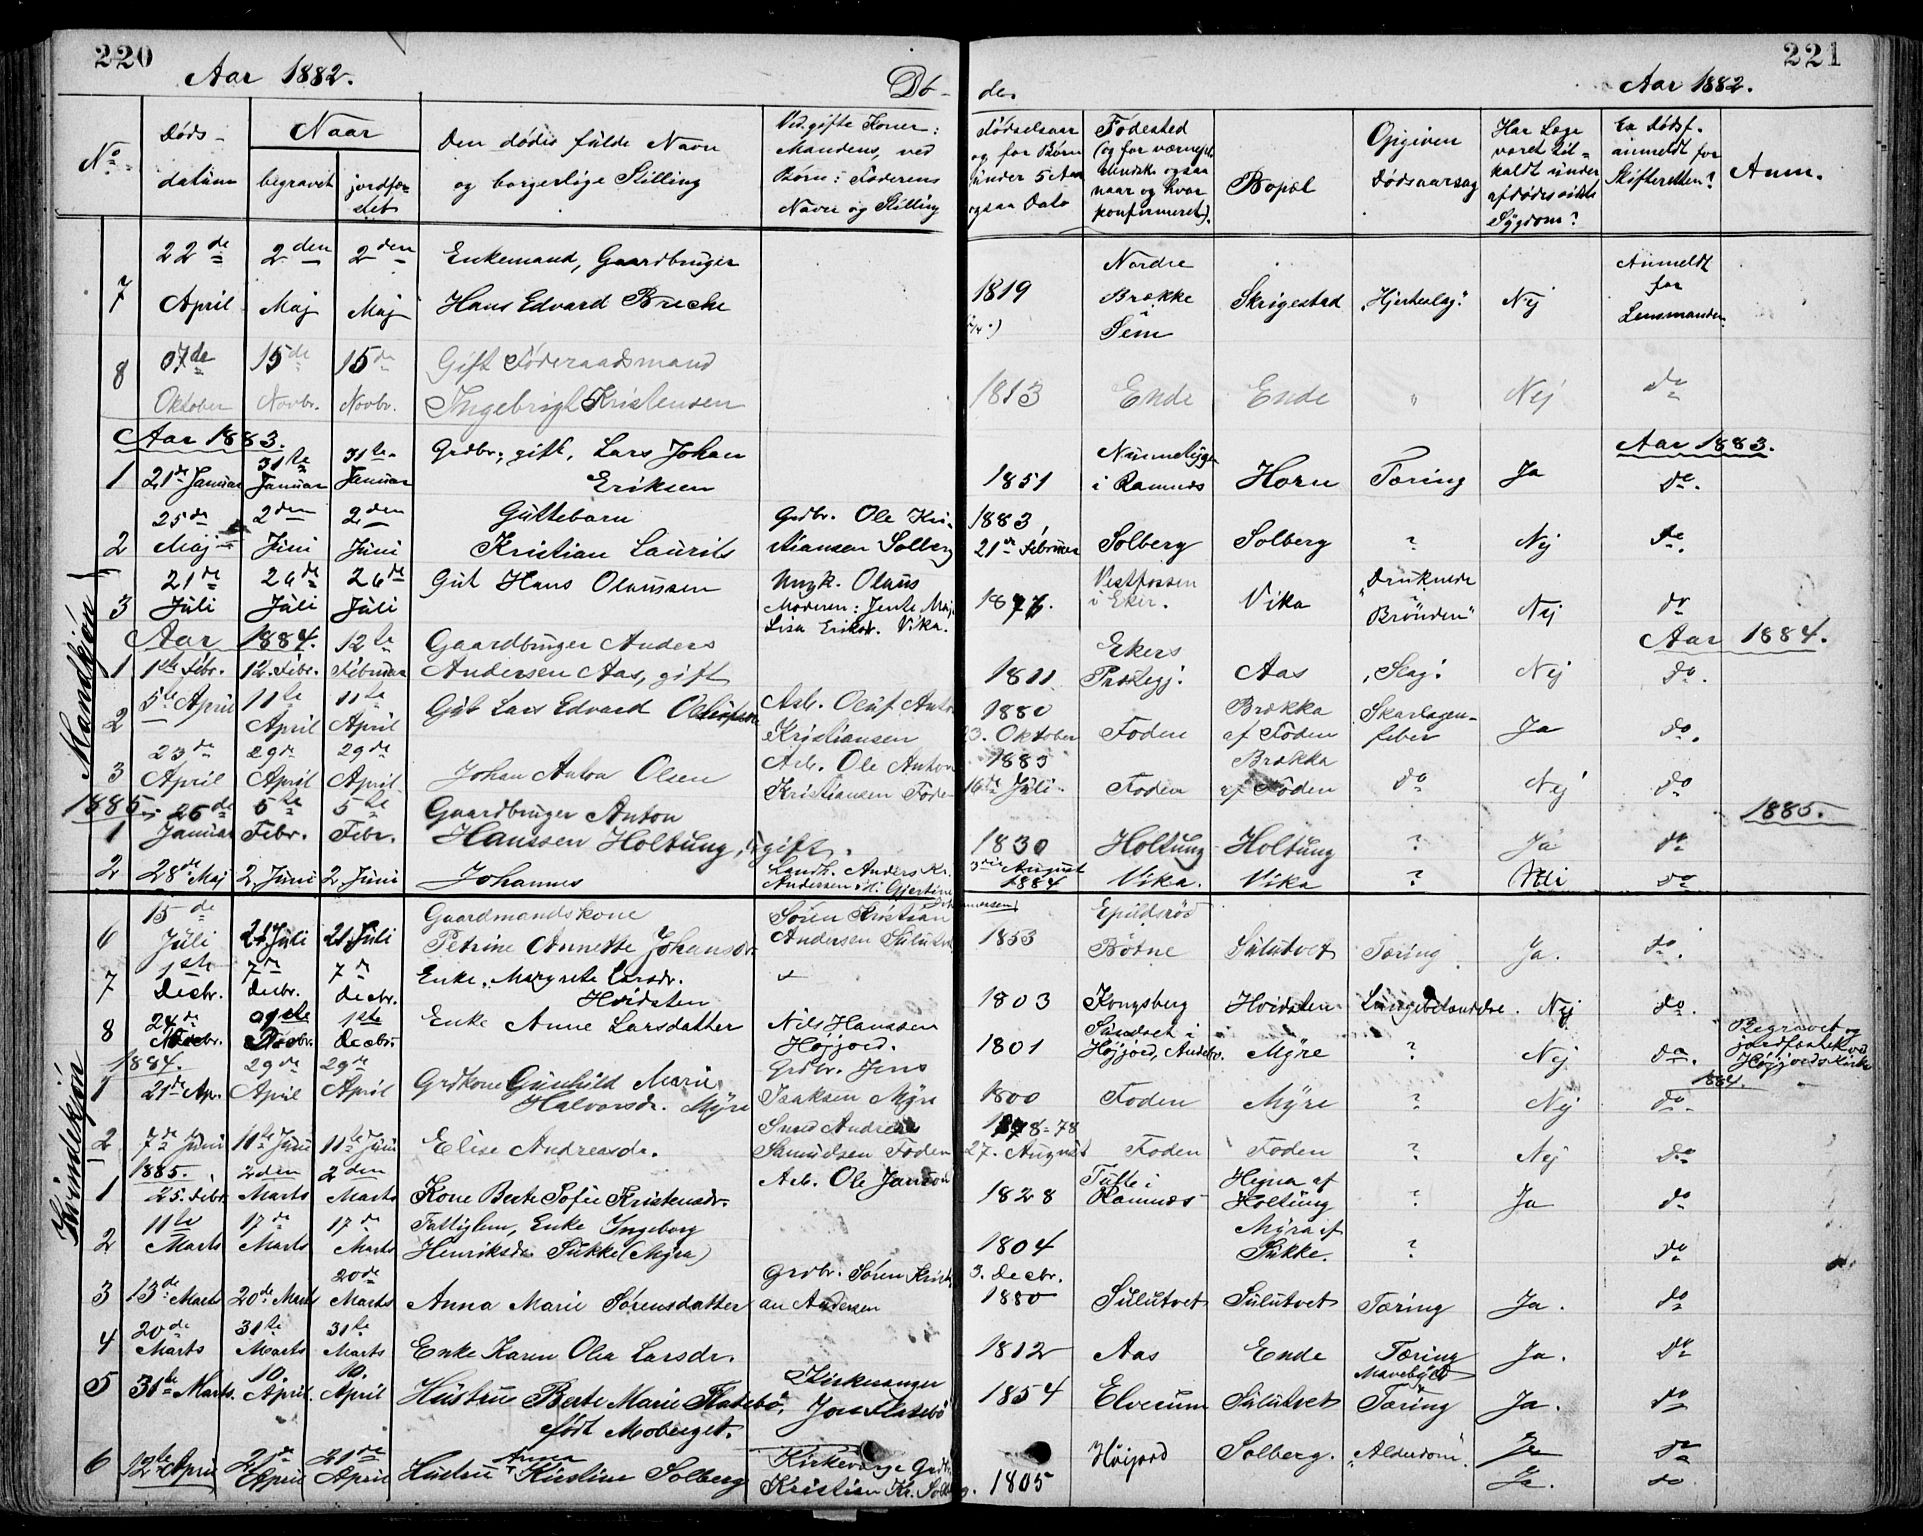 220
221
Aar 1882.
Dö-
de.
Aar 1882.
No
Døds-
datum
Naar
begravet
jordfæ-
stet
Den dødes fulde Navn
og borgerlige Stilling
Ved gifte Koner:
Mandens, ved
Børn: Faderens
Navn og Stilling
Fødselsaar
og for Børn
under 5 Aar
ogsaa Dato
Fødested
(og for værnepl.
Mandsk. ogsaa
naar og hvor
konfirmeret).
Bopæl
Opgiven
Dødsaarsag
Har Læge
været til-
kaldt under
afdødes sidste
Sygdom?
Er Dødsf.
anmeldt for
Skifteretten?
Anm.
Mandkjøn
7 22de April 2den Maj 2den Maj Enkemand, Gaardbruger
Hans Edvard Brecke 1819 Nordre Brække Sem Skrigestad "Hjerteslag" Nej Anmeldt for Lensmanden
8 07de Oktober 15de Novbr. 15de Novbr. Gift Föderaadsmand
Ingebrigt Kristensen 1813 Ende Ende " Nej do
Aar 1883.
Aar 1883.
1 21de Januar 31te Januar 31te Januar Grdbr., gift, Lars Johan
Eriksen 1851 i Ramnes Horn Tæring Ja do.
2 25de Maj 2den Juni 2den Juni Guttebarn
Kristian Laurits Grdbr. Ole Kri-
stiansen Solberg 1883, 21de Februar Solberg Solberg ? Nej do.
3 21de Juli 26de Juli 26de Juli Gut Hans Olaussen Ungk. Olaus
Moderen: Jente Maj.
Lisa Eriksd. Vika. Vestfossen i Eker. Vika "Druknede i Brönden" Nej do
Aar 1884.
Aar 1884.
1 1ste Febr. 12. Febr. 12te Februar Gaardbruger Anders
Andersen Aas, gift 1811 Ekers Præstegj. Aas "Slag". Nej do.
2 5te April 11te April 11te April Gut Lars Edvard Olufsen Arb. Oluf Anton
Kristiansen 1880 23. Oktober Foden Brækka af Foden Skarlagen-
feber Ja do.
3 23de April 29de April 29de April Johan Anton Olsen Arb. Ole Anton
Kristiansen Foden 1883 16de Juli Foden Brækka af Foden do Nej do
1885.
1885.
1 26de Januar 5te Febr. 5te Febr. Gaardbruger Anton
Hanssen Holtung, gift. 1830 Holtung Holtung ? Ja do
2 28de Maj 2. Juni 2. Juni Johannes Landh. Anders Kr.
Andersen 3die August 1884 Vika. Vika ? do
Kvindekjön
6 15de Juli 21 Juli 21 Juli Gaardmandskone
Petrine Annette Johansdr. Søren Kristian
Andersen Sulutvet 1853 Bötne Sulutvet Tæring Ja. do.
7 1ste Decbr. 7de Decbr. 7de Decbr. Enke, Margrete Larsdr.
Hvidsten 1803 Kongsberg Hvidsten Lungebetændelse. Nej do.
8 24de 1ste Decbr. Enke Anne Larsdatter Nils Hanssen
Højjord. 1801 Sundset i Højjord, Andebu. Myre ? Nej do. Begravet og
jordfæstet ved
Højjords Kirke
1884.
1884.
1 21de Apr. 29de April 29de April Grdkone Gunhild Marie
Halvorsdr. Myre Grdbr. Jens
Isaksen Myre 1800 Foden Myre ? Nej do.
2 7de Juni 11te Juni 11te Juni Elise Andreasdr. Smed Andreas
Samuelsen Foden 78 27. August Foden Foden ? Nej do
1885.
1 25. Febr. 2den Marts 2den Marts Kone Berte Sofie Kristensdr. Arb. Ole Jansen 1828 Tufte i Ramnes Hegna af Holtung ? Ja do
2 11te Marts 17de Marts 17de Marts Fattiglem, Enke Ingeborg
Henriksdr. Sukke (Myra) 1804 Myra af Sukke. ? do
3 13de Marts 20de Marts 20de Marts Anna Marie Sørensdatter Grdbr. Søren Kristi-
an Andersen 3. Decbr. 1880 Sulutvet Sulutvet Tæring Ja. do
4 20de Marts 31te Marts 31te Marts Enke Karen Olea Larsdr. 1812 Aas Ende Tæring Ja. do
5 31te Marts. 10. April. 10. April Hustru Berte Marie Flatebö,
født Moberget. Kirkesanger
Jon Flatebö 1854 Elverum Sulutvet Tæring Ja. do
6 12te April 21de April 21de April Hustru Anna Kirstine Solberg Kirkeværge Grdbr.
Kristian Kr. Solberg. 1805 Høijord Solberg. "Alderdom". Ja. do